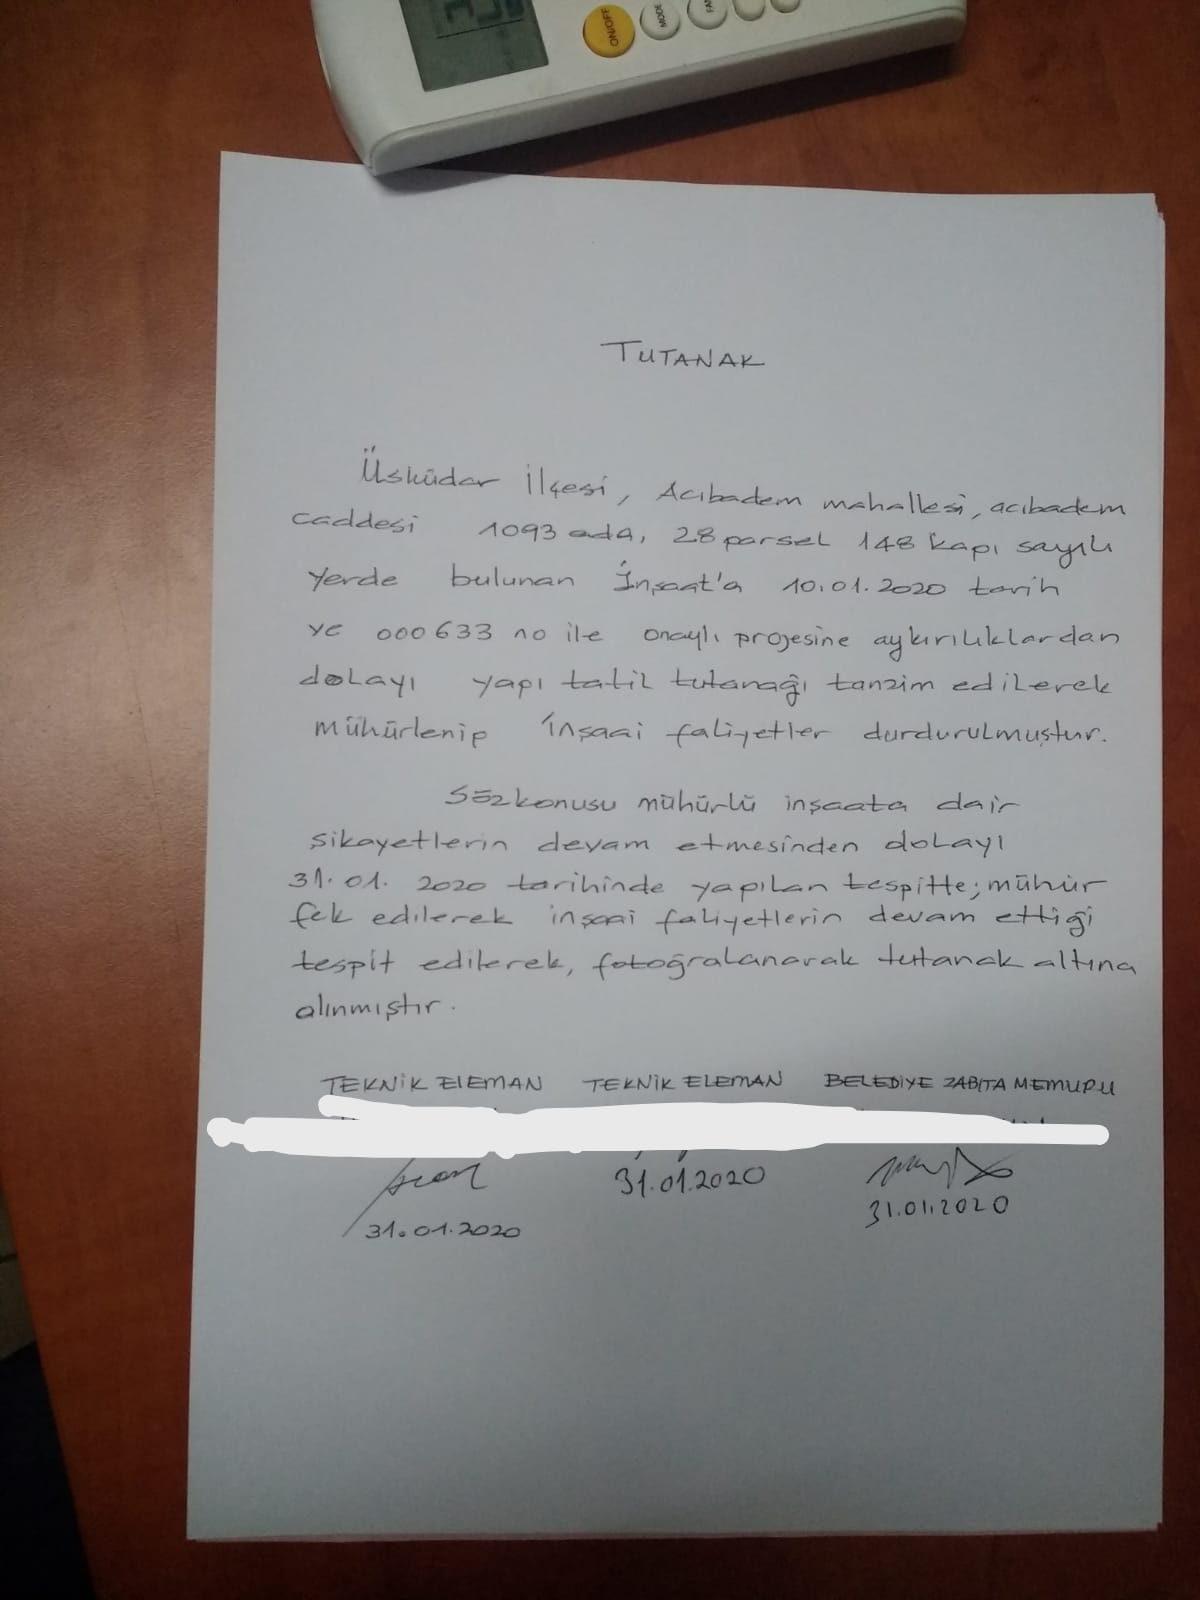 ON/OFF
MODE
FAN
TUTANAK
Üsküdar İlçesi, Acıbadem mahallesi, acıbadem
caddesi 1093 ada, 28 parsel 148 kapı sayılı
yerde bulunan İnşaat'a 10.01.2020 tarih
ve 000633 no ile onaylı projesine aykırılıklardan
dolayı yapı tatil tutanağı tanzim edilerek
mühürlenip İnşaai faliyetler durdurulmuştur.
Sözkonusu mühürlü inşaata dair
şikayetlerin devam etmesinden dolayı
31.01.2020 tarihinde yapılan tespitte; mühür
fek edilerek inşaai faliyetlerin devam ettiği
tespit edilerek, fotoğralanarak tutanak altına
alınmıştır.
TEKNİK ELEMAN TEKNİK ELEMAN BELEDİYE ZABITA MEMURU
31.01.2020 31.01.2020 31.01.2020